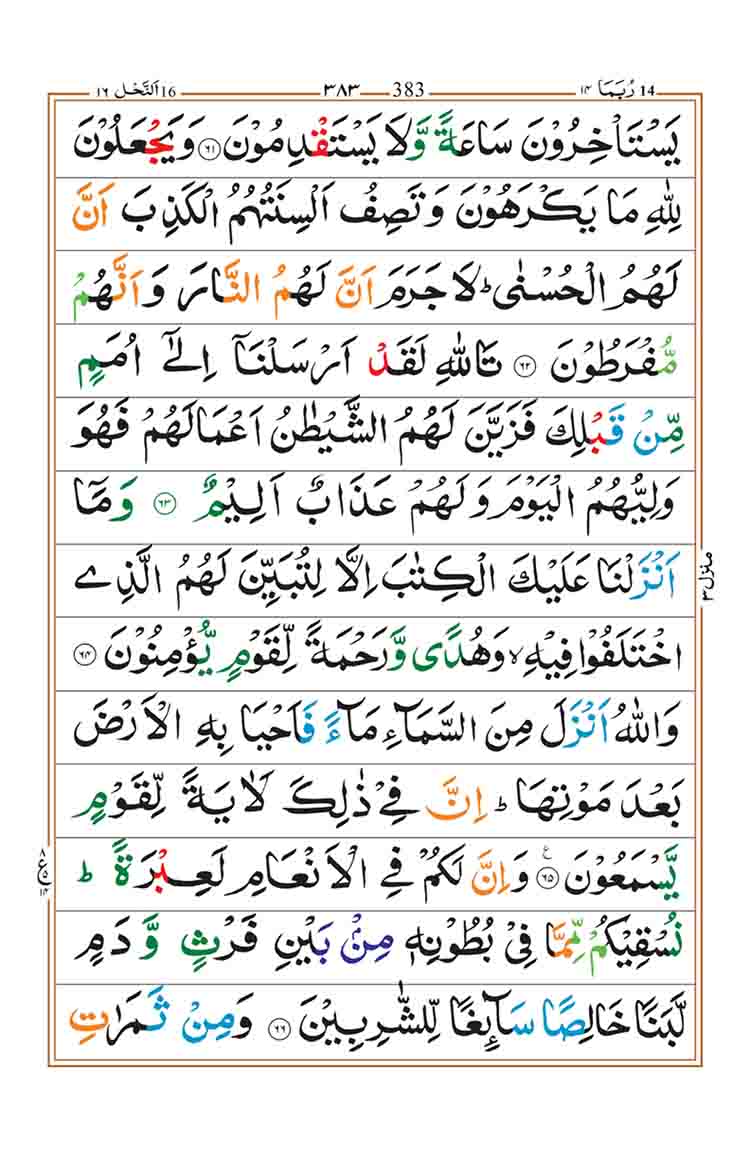 رُبَمَا 14 ١٤ 383 ٣٨٣ اَلنَّحْل 16 ١٦
يَسْتَاْخِرُوْنَ سَاعَةً وَّلَا يَسْتَقْدِمُوْنَ ۝٦١ وَيَجْعَلُوْنَ
لِلّٰهِ مَا يَكْرَهُوْنَ وَتَصِفُ اَلْسِنَتُهُمُ الْكَذِبَ اَنَّ
لَهُمُ الْحُسْنٰى ؕ لَا جَرَمَ اَنَّ لَهُمُ النَّارَ وَاَنَّهُمْ
مُّفْرَطُوْنَ ۝٦٢ تَاللّٰهِ لَقَدْ اَرْسَلْنَاۤ اِلٰۤى اُمَمٍ
مِّنْ قَبْلِكَ فَزَيَّنَ لَهُمُ الشَّيْطٰنُ اَعْمَالَهُمْ فَهُوَ
وَلِيُّهُمُ الْيَوْمَ وَلَهُمْ عَذَابٌ اَلِيْمٌ ۝٦٣ وَمَاۤ
اَنْزَلْنَا عَلَيْكَ الْكِتٰبَ اِلَّا لِتُبَيِّنَ لَهُمُ الَّذِى
اخْتَلَفُوْا فِيْهِ ۙ وَهُدًى وَّرَحْمَةً لِّقَوْمٍ يُّؤْمِنُوْنَ ۝٦٤
وَاللّٰهُ اَنْزَلَ مِنَ السَّمَآءِ مَآءً فَاَحْيَا بِهِ الْاَرْضَ
بَعْدَ مَوْتِهَا ؕ اِنَّ فِيْ ذٰلِكَ لَاٰيَةً لِّقَوْمٍ
يَّسْمَعُوْنَ ۝٦٥ ع وَاِنَّ لَكُمْ فِى الْاَنْعَامِ لَعِبْرَةً ؕ
نُسْقِيْكُمْ مِّمَّا فِيْ بُطُوْنِهٖ مِنْۢ بَيْنِ فَرْثٍ وَّدَمٍ
لَّبَنًا خَالِصًا سَآئِغًا لِّلشّٰرِبِيْنَ ۝٦٦ وَمِنْ ثَمَرٰتِ
منزل ٣
٨ ع ٥ ١٤